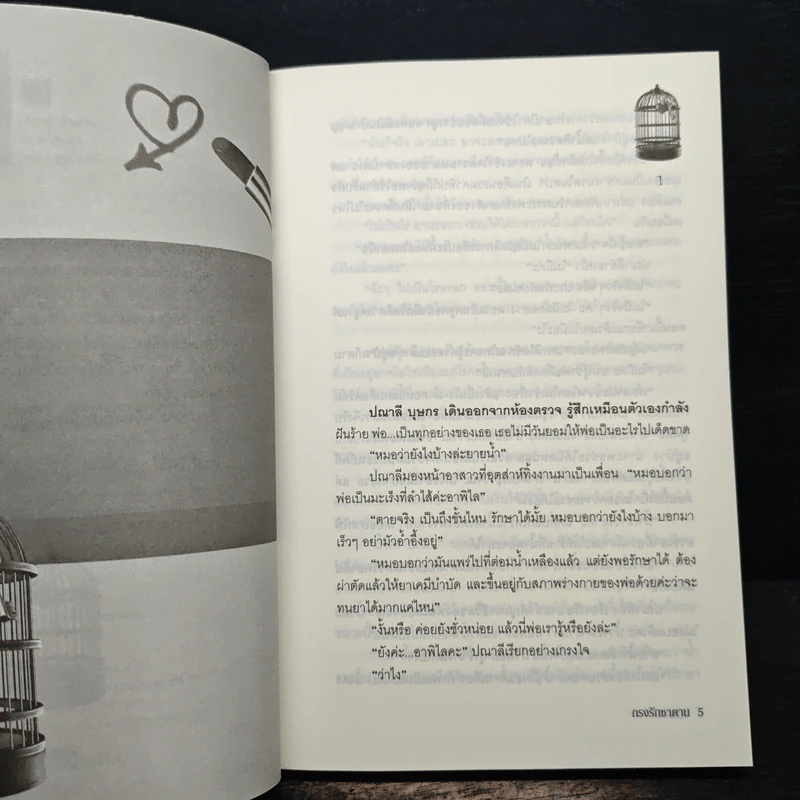 1
ปณาลี บุษกร เดินออกจากห้องตรวจ รู้สึกเหมือนตัวเองกำลัง
ฝันร้าย พ่อ...เป็นทุกอย่างของเธอ เธอไม่มีวันยอมให้พ่อเป็นอะไรไปเด็ดขาด
“หมอว่ายังไงบ้างล่ะยายน้ำ”
ปณาลีมองหน้าอาสาวที่อุตส่าห์ทิ้งงานมาเป็นเพื่อน “หมอบอกว่า
พ่อเป็นมะเร็งที่ลำไส้ค่ะอาพิไล”
“ตายจริง เป็นถึงขั้นไหน รักษาได้มั้ย หมอบอกว่ายังไงบ้าง บอกมา
เร็วๆ อย่ามัวอ้ำอึ้งอยู่”
“หมอบอกว่ามันแพร่ไปที่ต่อมน้ำเหลืองแล้ว แต่ยังพอรักษาได้ ต้อง
ผ่าตัดแล้วให้ยาเคมีบำบัด และขึ้นอยู่กับสภาพร่างกายของพ่อด้วยค่ะว่าจะ
ทนยาได้มากแค่ไหน”
“งั้นหรือ ค่อยยังชั่วหน่อย แล้วนี่พ่อเรารู้หรือยังล่ะ”
“ยังค่ะ...อาพิไลคะ” ปณาลีเรียกอย่างเกรงใจ
“ว่าไง”
กรงรักซาตาน 5